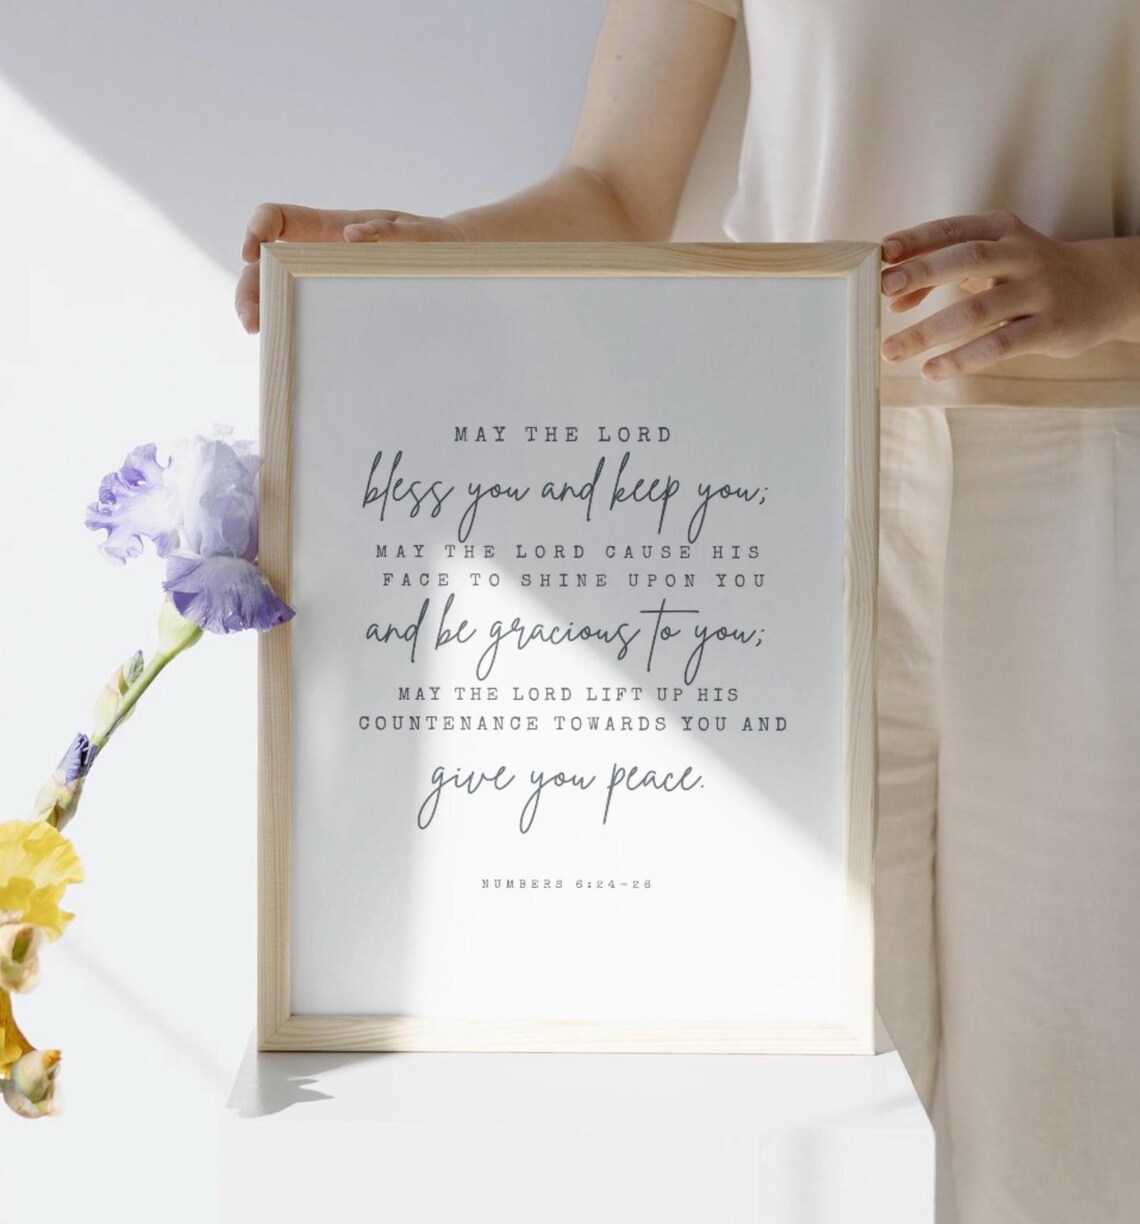 MAY THE LORD
bless you and keep you;
MAY THE LORD CAUSE HIS
FACE TO SHINE UPON YOU
and be gracious to you;
MAY THE LORD LIFT UP HIS
COUNTENANCE TOWARDS YOU AND
give you peace.
NUMBERS 6:24-26